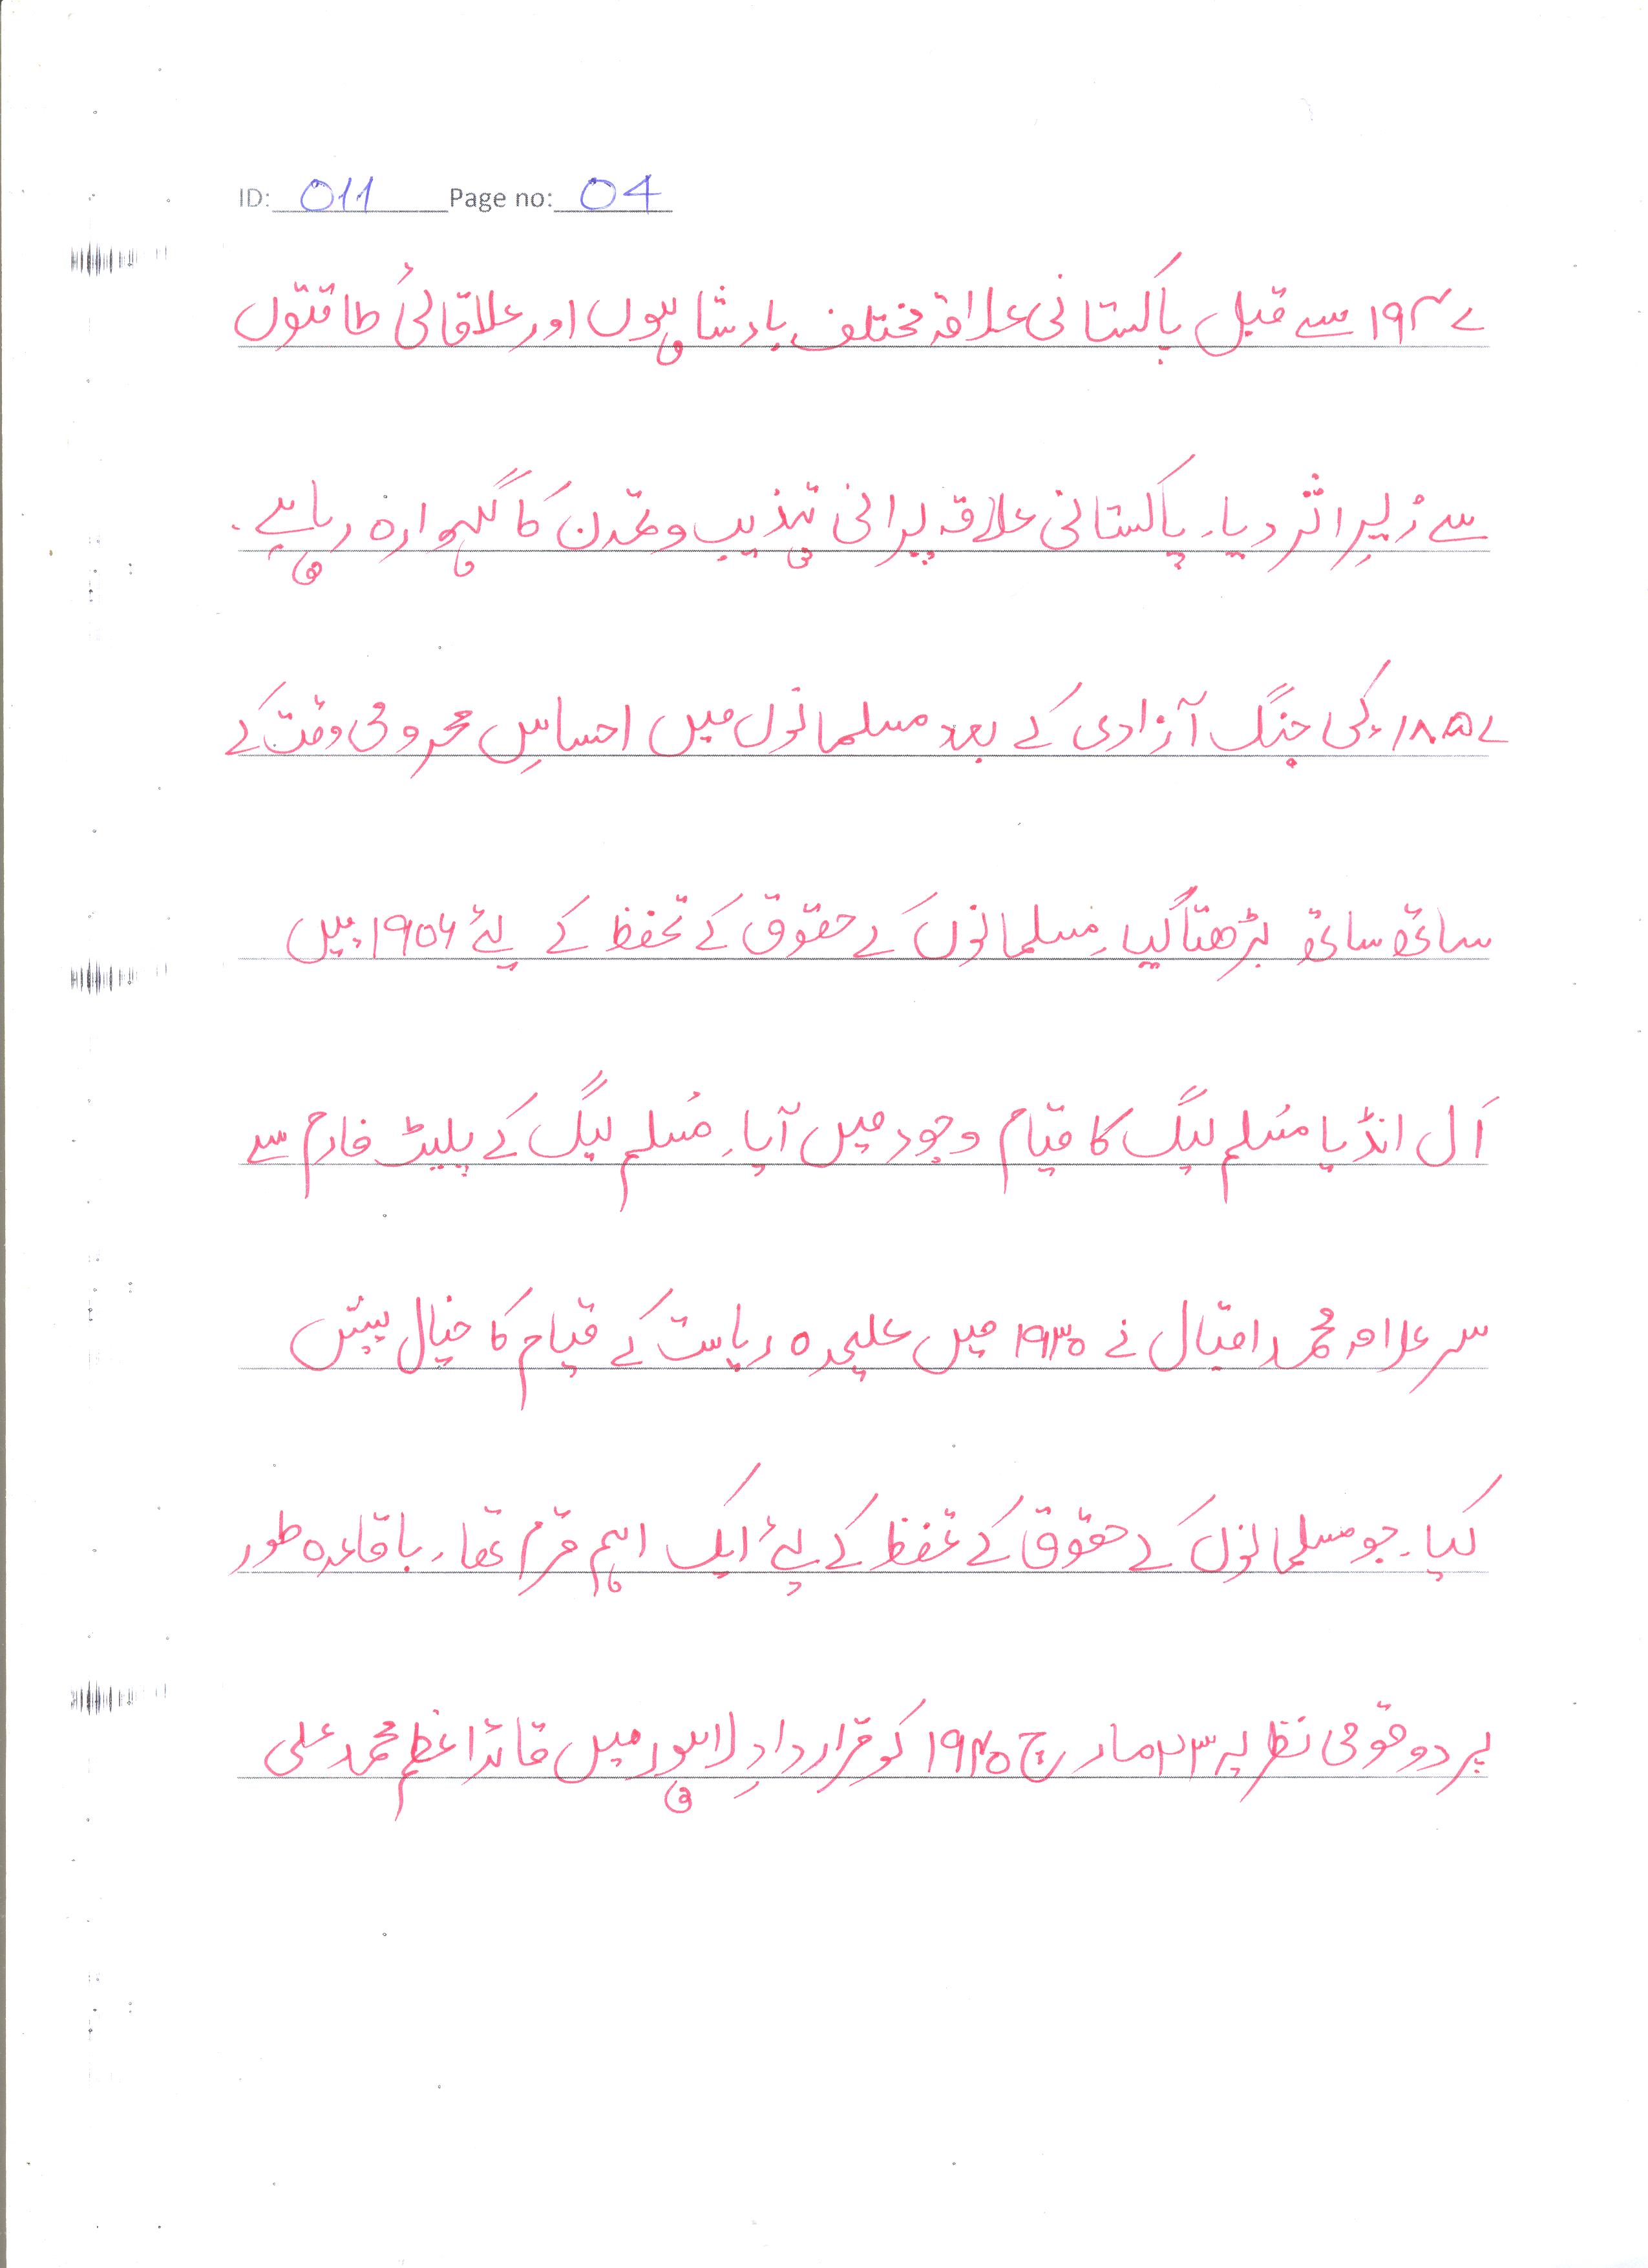 ID: 011 Page no: 04
۱۹۴۷ سے قبل پاکستانی علاقہ مختلف بادشاہوں اور علاقائی طاقتوں
سے زیرِ اثر دیا۔ پاکستانی علاقہ پرانی تہذیب و تمدن کا گہوارہ رہا ہے۔
۱۸۵۷ء کی جنگ آزادی کے بعد مسلمانوں میں احساسِ محرومی وقت کے
ساتھ ساتھ بڑھتا گیا۔ مسلمانوں کے حقوق کے تحفظ کے لئے ۱۹۰۶ء میں
اَل انڈیا مُسلم لیگ کا قیام وجود میں آیا۔ مُسلم لیگ کے پلیٹ فارم سے
سر علامہ محمد اقبال نے ۱۹۳۰ میں علیحدہ ریاست کے قیام کا خیال پیش
کیا۔ جو مسلمانوں کے حقوق کے تحفظ کے لئے ایک اہم قدم تھا۔ باقاعدہ طور
پر دو قومی نظریہ ۲۳ مارچ ۱۹۴۰ کو قراردادِ لاہور میں قائداعظم محمد علی